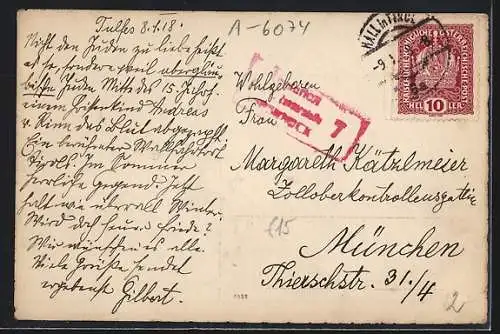 Tulfes 8./1.18.
A-6074
Nicht den Juden zu liebe heißt
es so, sondern weil abergläu-
bische Juden Mitte des 15. Jahrh.
einem Hirtenkind Andreas
v. Rinn das Blut abgezapft.
Ein berühmter Wallfahrtsort
Tyrols. Im Sommer
herrliche Gegend. Jetzt
halt wie überall Winter.
Wird das heuer Friede?
Wir wünschten es alle.
Viele Grüße sendet
ergebenst Gilbert.
HALL in TIROL
KAISERLICHE KÖNIGLICHE ÖSTERREICHISCHE POST
HELLER
10
7
Wohlgeboren
Frau
Margareth Kätzlmeier
Zolloberkontrollensgattin
£15
München
Thierschstr. 31./4
2